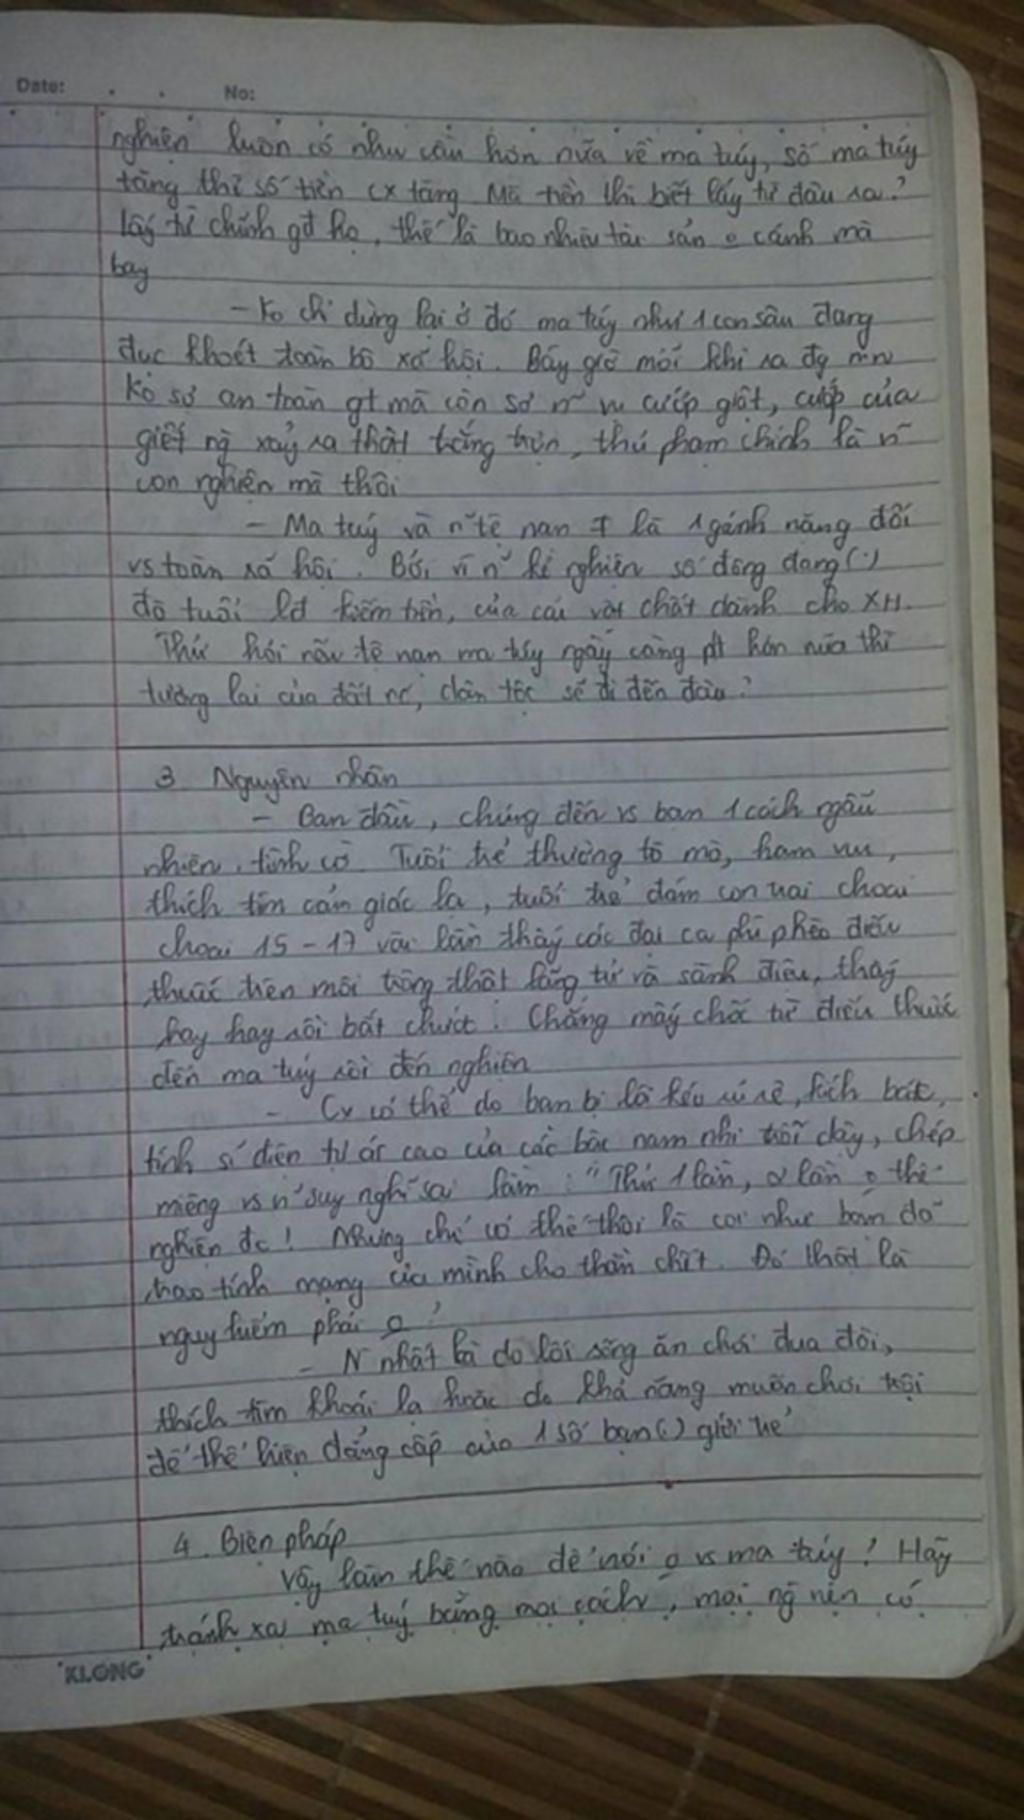 Date: . . No:
nghiện luôn có nhu cầu hơn nữa về ma túy, số ma túy
tăng thì số tiền cx tăng. Mà tiền thì biết lấy từ đâu ra?
lấy từ chính gđ họ, thế là bao nhiêu tài sản o cánh mà
bay
- Ko chỉ dừng lại ở đó ma túy như 1 con sâu đang
đục khoét toàn bộ xã hội. Bây giờ mỗi khi ra đg
ko sợ an toàn gt mà còn sợ n~ vụ cướp giật, cướp của
giết ng xảy ra thật trắng trợn, thủ phạm chính là n~
con nghiện mà thôi
- Ma tuý và n~ tệ nạn ≠ là 1 gánh nặng đối
vs toàn xã hội. Bởi vì n~ kẻ nghiện số đông đang (.)
độ tuổi lđ kiếm tiền, của cải vật chất dành cho XH.
Thử hỏi nếu tệ nạn ma túy ngày càng pt hơn nữa thì
tương lai của đất nc, dân tộc sẽ đi đến đâu?
3. Nguyên nhân
- Ban đầu, chúng đến vs bạn 1 cách ngẫu
nhiên, tình cờ. Tuổi trẻ thường tò mò, ham vui,
thích tìm cảm giác lạ, tuổi trẻ đám con trai choai
choai 15 - 17 vài lần thấy các đại ca phì phèo điếu
thuốc trên môi trông thật lãng tử và sành điệu, thấy
hay hay rồi bắt chước! Chẳng mấy chốc từ điếu thuốc
đến ma túy rồi đến nghiện
- Cx có thể do bạn bị lôi kéo rủ rê, kích bác,
tính sĩ diện tự ái cao của các bậc nam nhi trỗi dậy, chép
miệng vs n~ suy nghĩ sai lầm: "Thử 1 lần, 2 lần o thể
nghiện đc! Nhưng chỉ có thế thôi là coi như bạn đã
trao tính mạng của mình cho thần chết. Đó thật là
nguy hiểm phải o?
- N nhất là do lối sống ăn chơi đua đòi,
thích tìm khoái lạ hoặc do khả năng muốn chơi trội
để thể hiện đẳng cấp của 1 số bạn (.) giới trẻ
4. Biện pháp
Vậy làm thế nào để nói o vs ma túy! Hãy
tránh xa ma tuý bằng mọi cách, mọi ng nên có
"KLONG"